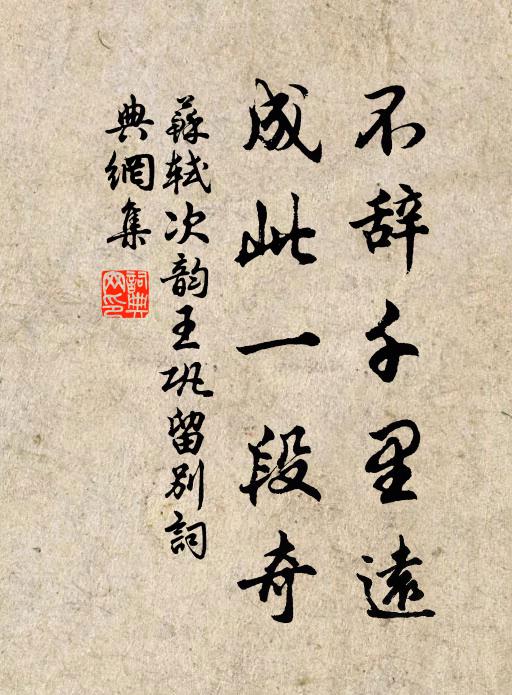 不辞千里遠
成此一段奇
蘇軾次韵王巩留别詞
典網集
詞典网印